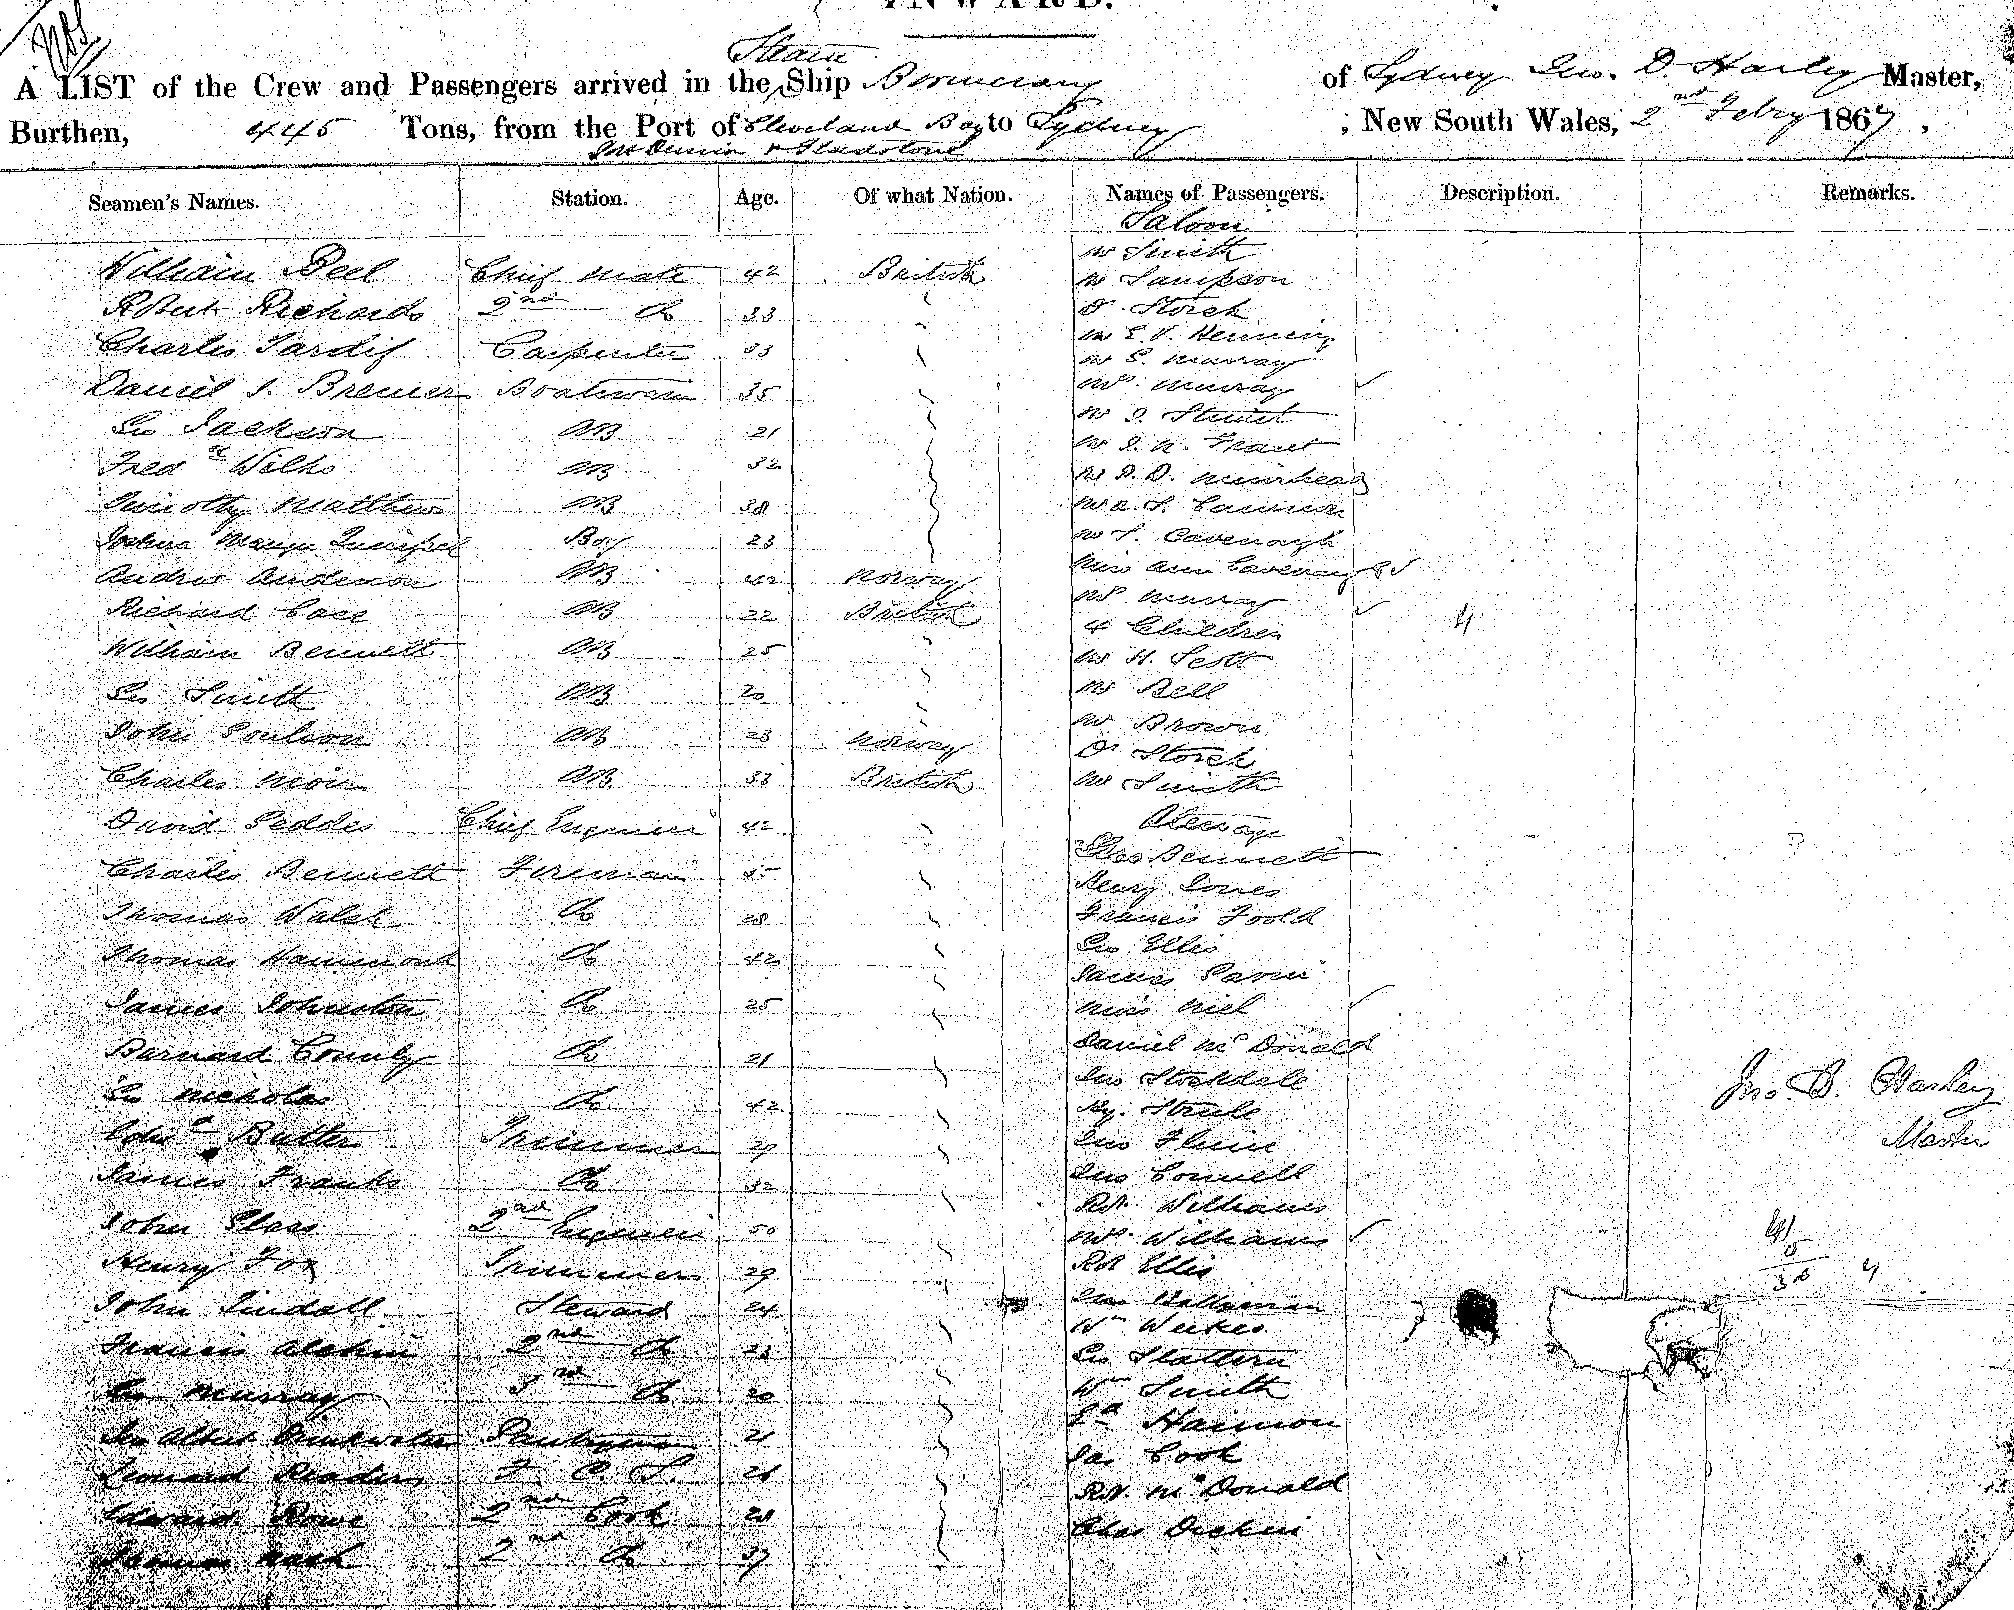 INWARD.
Steam
A LIST of the Crew and Passengers arrived in the Ship Boomerang of Sydney Jno. D. Harley Master,
Burthen, 445 Tons, from the Port of Cleveland Bay to Sydney ; New South Wales, 2nd Febry 1867,
& Gladstone
Seamen's Names. Station. Age. Of what Nation. Names of Passengers. Description. Remarks.
Saloon
William Peel Chief Mate 42 British Mr Smith
Mr Sampson
Robert Richards 2nd Do 33 Dr Storch
Charles Tardif Carpenter 33 Mr E. V. Henning
Mr E. Murray
Daniel J. Bremer Boatswain 35 Mrs Murray
Geo Jackson AB 21 Mr J. Stewart
Fredk Wilks AB 32 Mr J. N. Grant
Mr D. D. Muirhead
Timothy Matthews AB 38 Mr A. S. Cameron
Joshua Boy 23 Mr S. Cavenagh
Andrew Anderson AB 42 Norway Miss Ann Cavenagh
Richard Case AB 22 British Mrs Murray
4 Children
William Bennett AB 25 Mr H. Scott
Geo Smith AB 20 Mr Bell
Mr Brown
John Poulson AB 23 Norway Dr Storch
Charles Moir AB 33 British Mr Smith
David Geddes Chief Engineer 42 Steerage
Chas Bennett
Charles Bennett Fireman 35 Henry Jones
Thomas Walsh Do 28 Francis Foold
Geo Ellis
Thomas Hammond Do 42 James
James Johnston Do 25 Miss Niel
Barnard Connly Do 21 Daniel McDonald
Jno Stockdale
Geo Nicholas Do 42 Hy. Steele
Edwd Butler Trimmer 29 Jno Flinn
James Franks Do 32 Jno Connell
Rt. Williams
John Glass 2nd Engineer 50 Mrs Williams
Henry Fox Trimmer 29 Rt Ellis
John Tindall Steward 24 Jno
Wm Weekes
Francis Alchin 2nd Do 23 Geo Slattery
Geo Murray 3rd Do 20 Wm Smith
Ed Harmon
Geo Albert Drinkwater Pantryman 21 Jas Cook
Leonard Reading F. C. S. 26 Rt. McDonald
Edward Rowe 2nd Cook 28 Chas Dickin
James Nash 2nd Do 37
Jno. D. Harley
Master